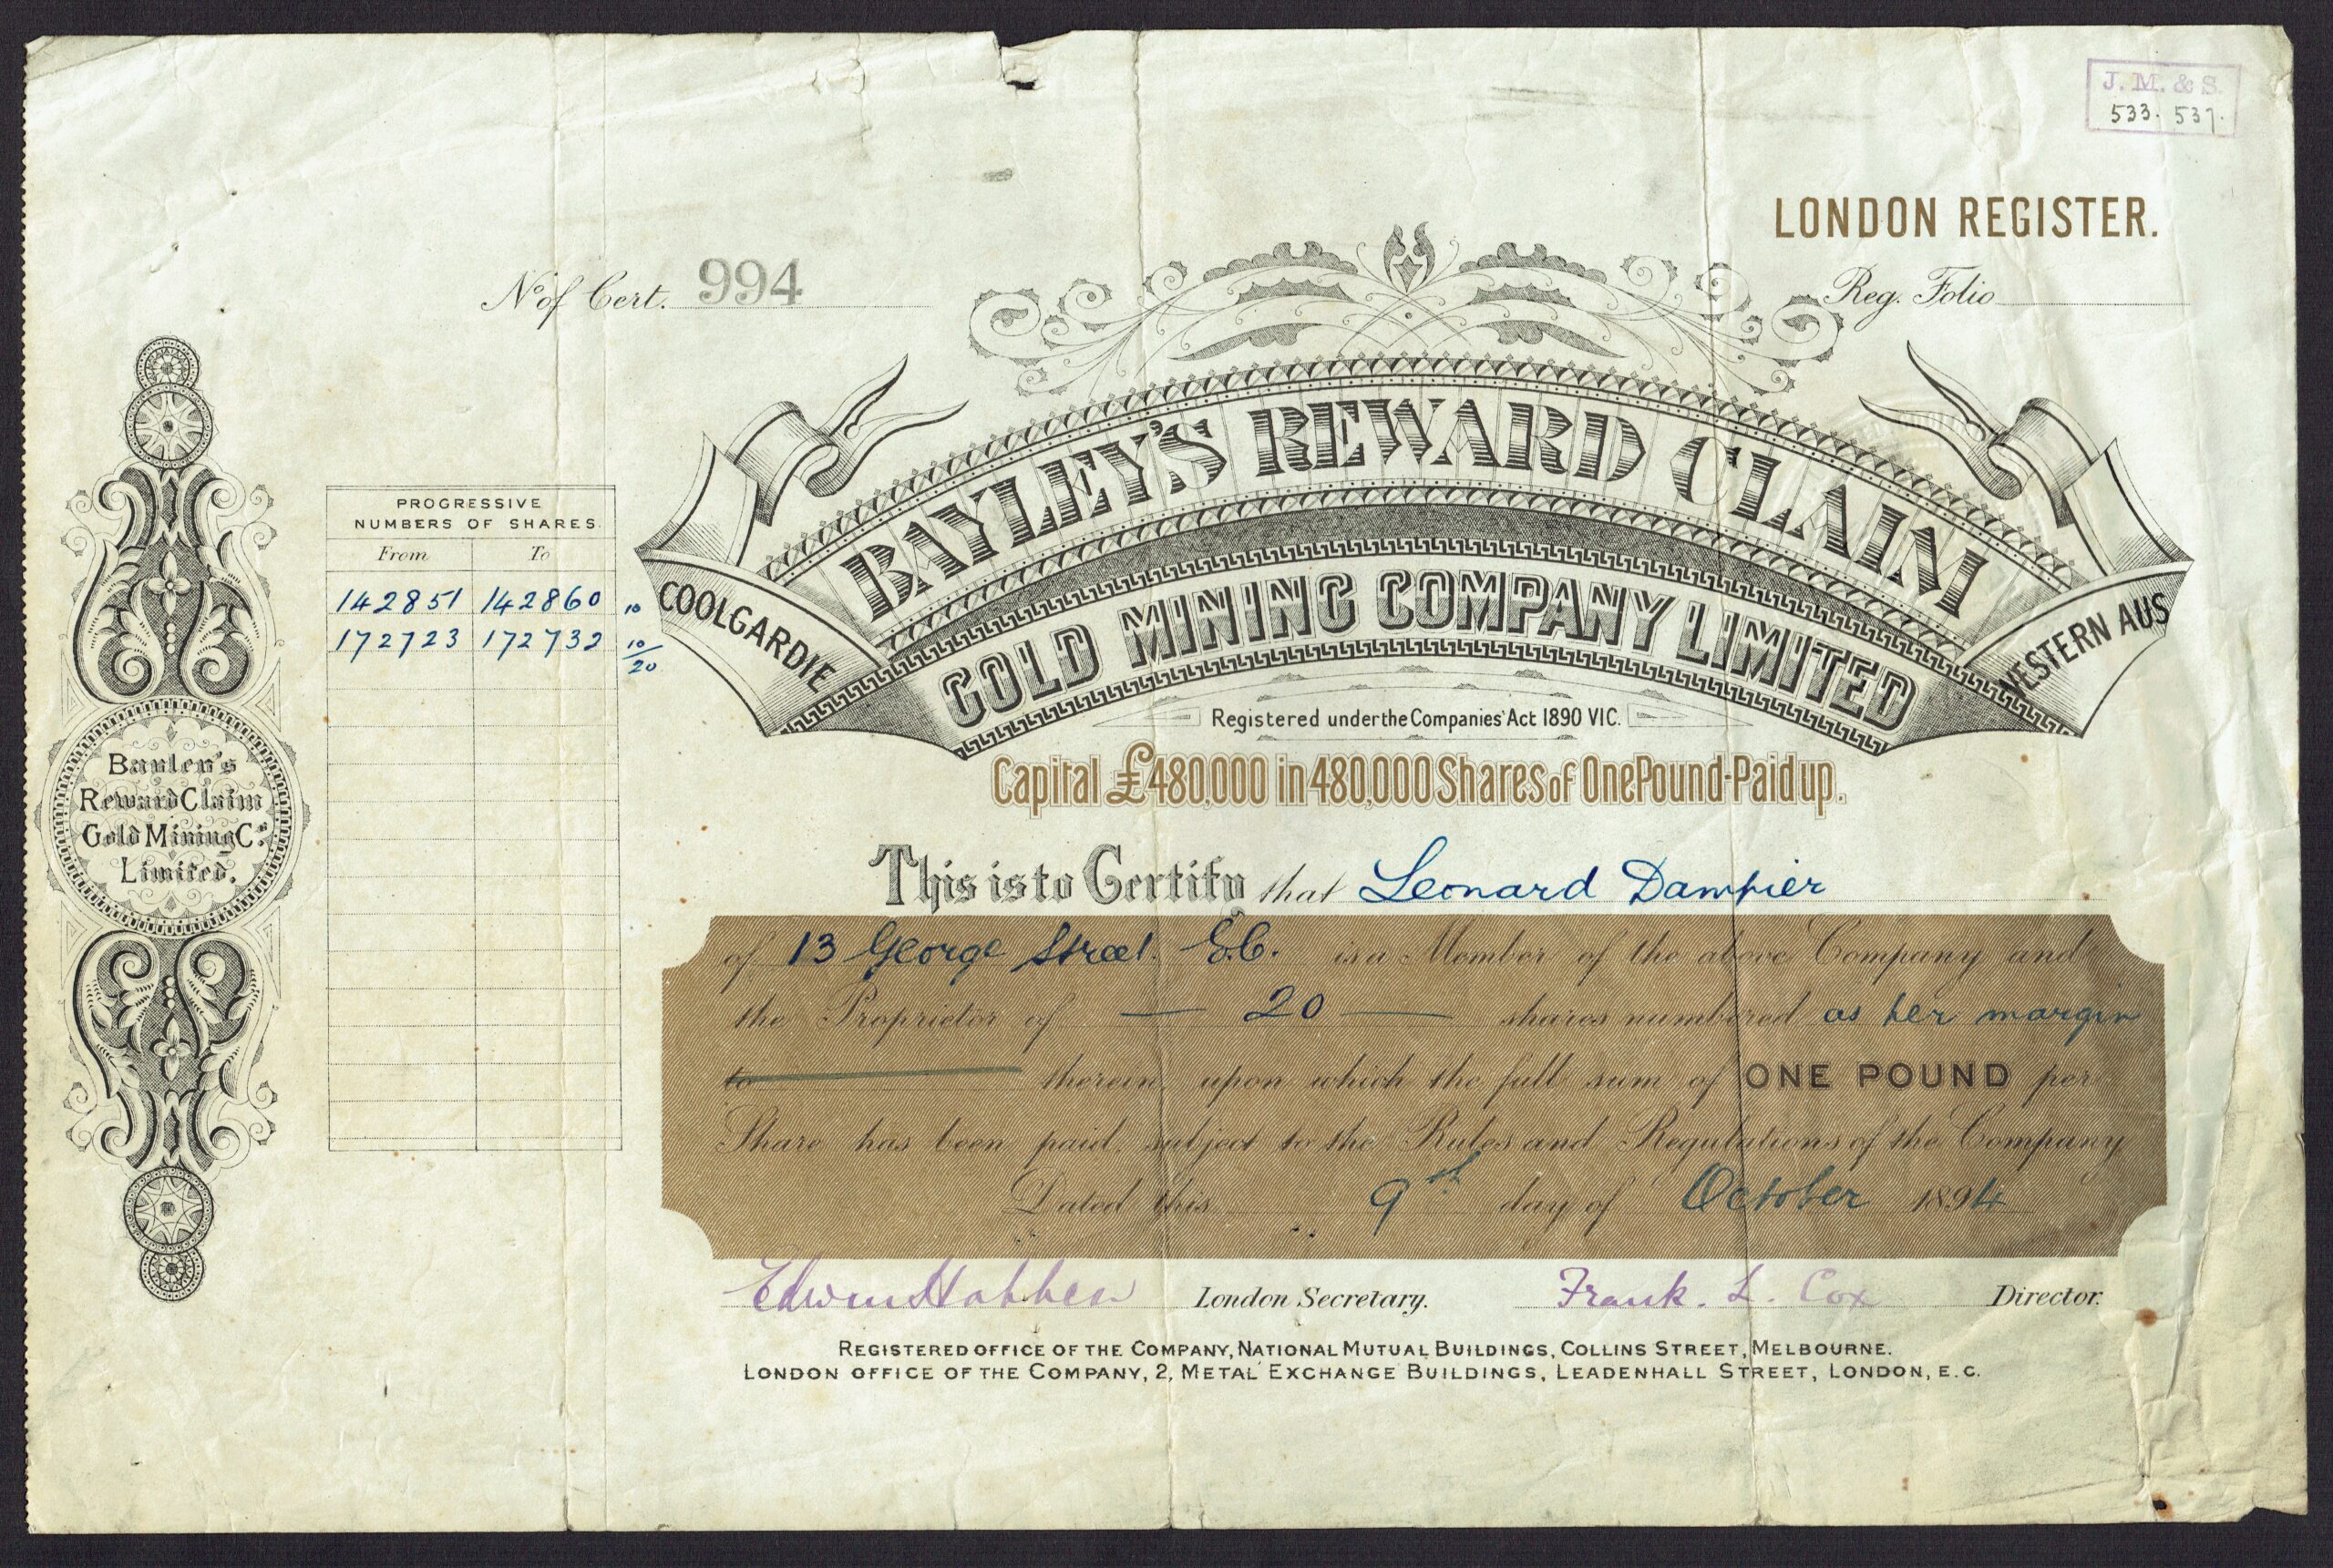 J. M. & S.
533. 537.
LONDON REGISTER.
No of Cert. 994
Reg. Folio
BAYLEY'S REWARD CLAIM
GOLD MINING COMPANY LIMITED
COOLGARDIE
WESTERN AUS
Registered under the Companies' Act 1890 VIC.
Capital £480,000 in 480,000 Shares of One Pound-Paid up.
PROGRESSIVE
NUMBERS OF SHARES.
From To
142851 142860 10
172723 172732 10
20
Bayley's
Reward Claim
Gold Mining Co.
Limited.
This is to Certify that Leonard Dampier
of 13 George Street. E.C. is a Member of the above Company and
the Proprietor of — 20 — shares numbered as per margin
to therein upon which the full sum of ONE POUND per
Share has been paid. subject to the Rules and Regulations of the Company
Dated this 9th day of October 1894
Edwin London Secretary. Frank. L. Cox Director.
REGISTERED OFFICE OF THE COMPANY, NATIONAL MUTUAL BUILDINGS, COLLINS STREET, MELBOURNE.
LONDON OFFICE OF THE COMPANY, 2, METAL EXCHANGE BUILDINGS, LEADENHALL STREET, LONDON, E.C.